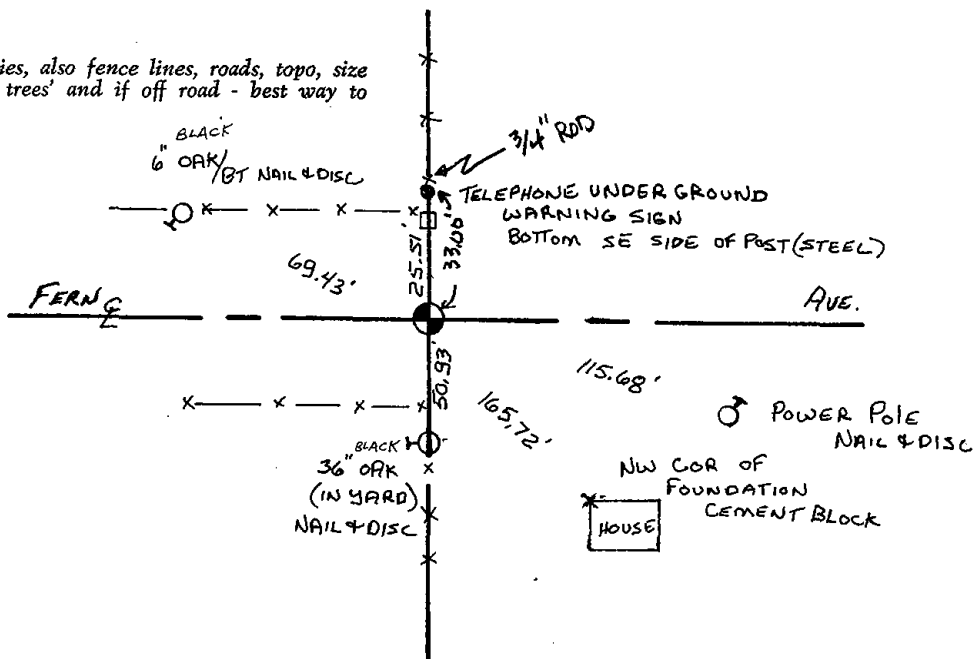 ies, also fence lines, roads, topo, size
trees' and if off road - best way to
BLACK
6" OAK/BT NAIL & DISC
3/4" ROD
TELEPHONE UNDERGROUND
WARNING SIGN
BOTTOM SE SIDE OF POST (STEEL)
25.51'
33.00'
69.43'
FERN ℄
AVE.
50.93'
165.72'
115.68'
POWER POLE
NAIL & DISC
BLACK
36" OAK
(IN YARD)
NAIL & DISC
NW COR OF
FOUNDATION
CEMENT BLOCK
HOUSE